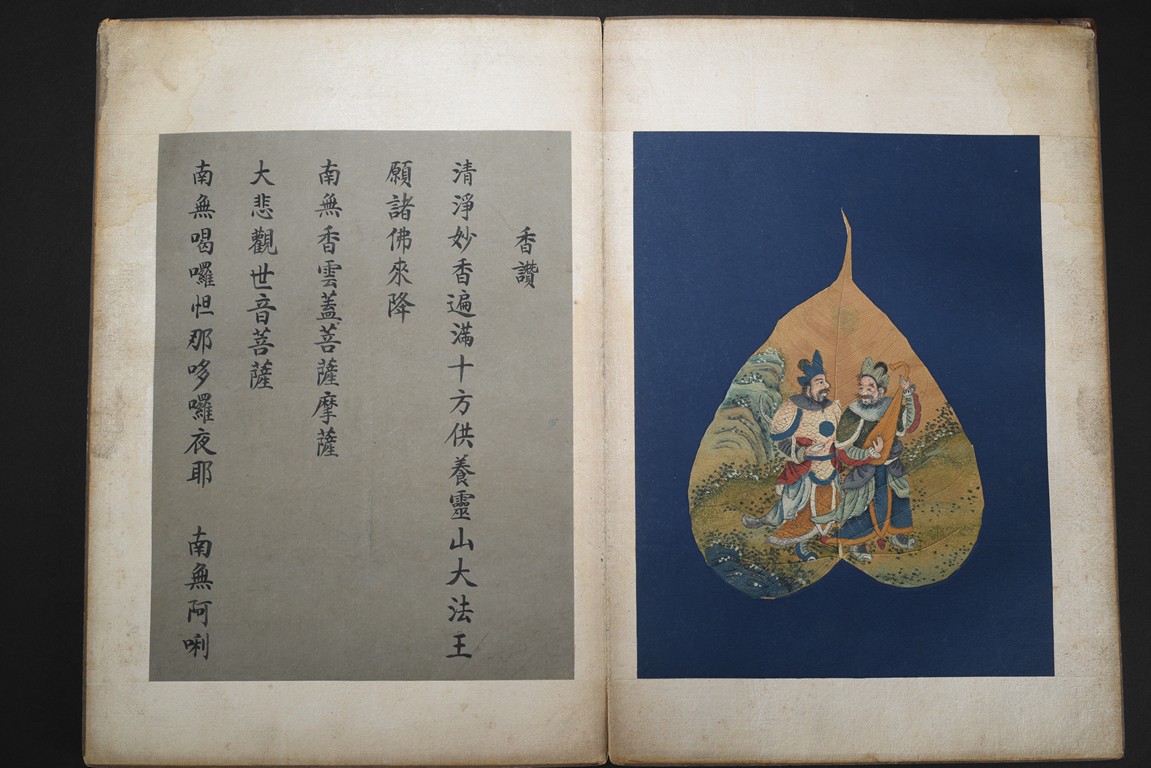 香讚
清淨妙香遍滿十方供養靈山大法王
願諸佛來降
南無香雲蓋菩薩摩薩
大悲觀世音菩薩
南無喝囉怛那哆囉夜耶　南無阿唎